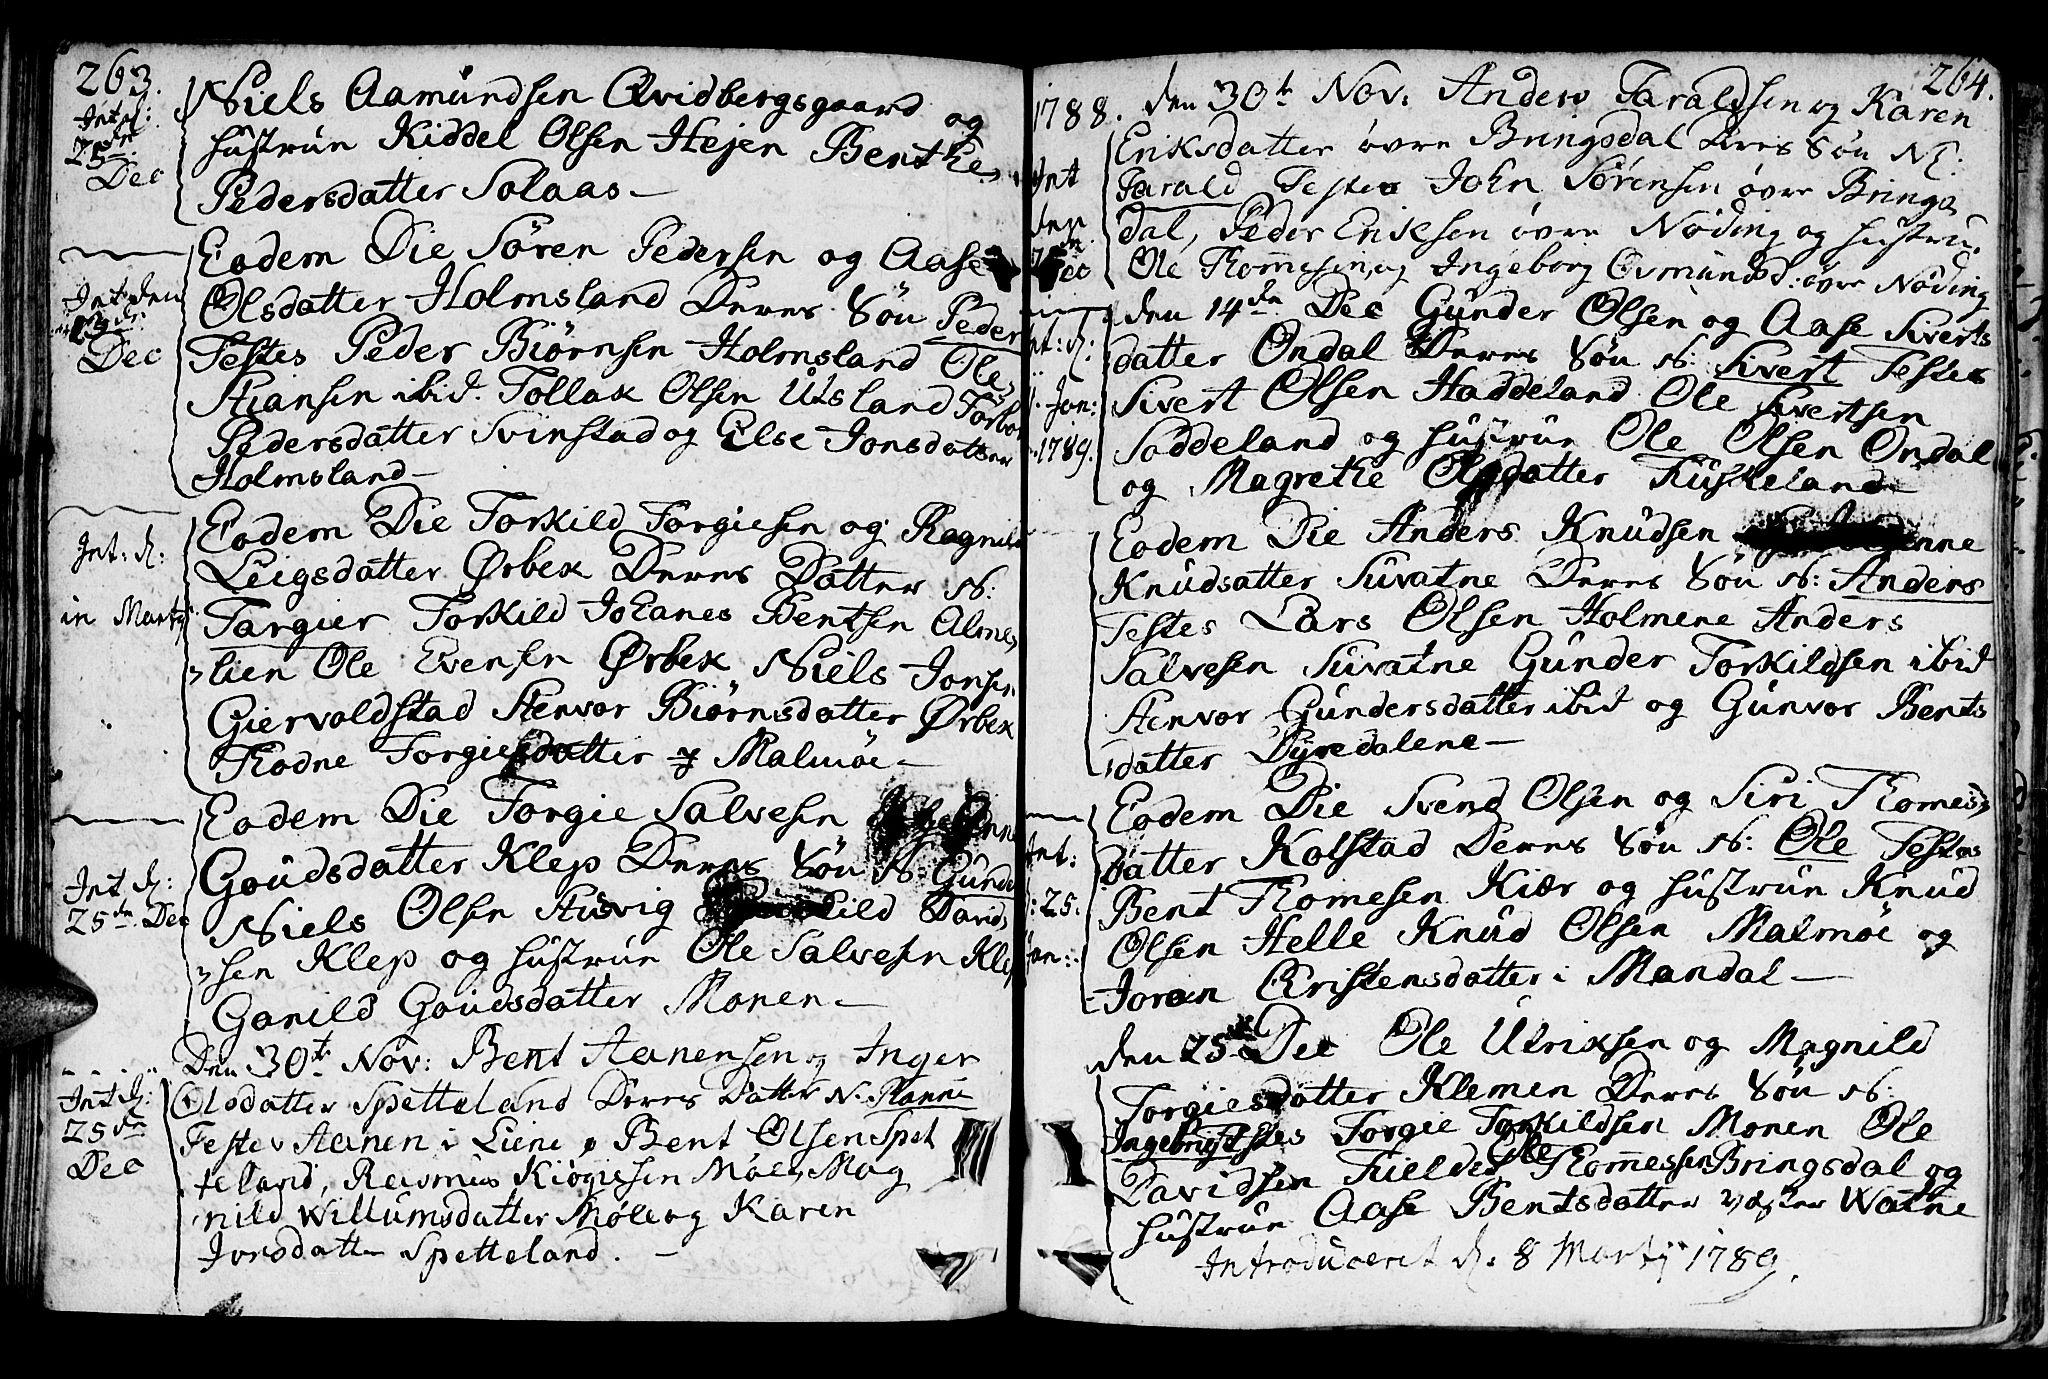 263.
Int d:
25de
Dec
Niels Aamundsen Qvidbergsgaard og
hustrue Kiddel Olsen Hejen Benthe
Pedersdatter Solaas
Int den
Dec
Eodem Die Søren Pedersen og Aase
Olsdatter Holmsland Deres Søn Peder
Testes Peder Biørnsen Holmsland Ole
Stiansen ibid. Tollak Olsen Udsland
Pedersdatter Svinstad og Else Jonsdatter
Holmsland
Int: d:
in Martij
Eodem Die Torkild Torgiesen og Ragnild
Leigsdatter Ørbek Deres Datter N:
Targier Torkild Johanes Bentsen Almes
lien Ole Evensen Ørbek Niels Jonsen
Giervoldstad Stenvor Biørnsdatter Ørbek
Thodne Torgiesdatter Malmøe
Int d:
25de Dec
Eodem Die Torgie Salvesen
Goudsdatter Klep Deres Søn N: Gunder
Niels Olsen Ausvig David
sen Klep og hustrue Ole Salvesen Klep
Gonild Goudsdatter Monen
Int d:
25de
Dec
Den 30te Nov: Bent Aanensen og Inger
Olsdatter Spetteland Deres Datter N.
Testes Aanen i Liene Bent Olsen Spet
teland, Rasmus Møll, Mag
nild Willumsdatter Møll og Karen
Spetteland.
264.
1788. den 30te Nov: Anders Taraldsen og Karen
Int
den
Dec
Eriksdatter øvre Bringsdal Deres Søn N:
Tarald Testes John Sørensen øvre Brings
dal, Peder Eriksen øvre Nøding og hustru.
Ole Thommesen og Ingeborg Øvre Nøding
Int: d:
Jan:
1789.
den 14de Dec Gunder Olsen og Aase Siverts
datter Ondal Deres Søn N: Sivert Testes
Sivert Olsen Haddeland Ole Sivertsen
Soddeland og hustrue Ole Olsen Ondal
og Magrethe Olsdatter Fuskeland
Eodem Die Anders Knudsen
Knudsatter Suvatne Deres Søn N: Anders
Testes Lars Olsen Holmene Anders
Salvesen Suvatne Gunder Torkildsen ibid
Stenvor Gundersdatter ibid og Gunvor Bents
datter Dyredalene
Int:
25.
Jan:
Eodem Die Svend Olsen og Siri Thomes
datter Kolstad Deres Søn N: Ole Testes
Bent Thomesen Kiær og hustrue Knud
Olsen Helle Knud Olsen Malmøe og
Joran Christensdatter i Mandal
den 25de Dec Ole Ulriksen og Magnild
Torgiesdatter Klemen Deres Søn N:
Ingebrigt Testes Torgie Torkildsen Monen Ole
Davidsen Ole Thommessen Bringsdal og
hustrue Aase Bentsdatter Vatne
Introduceret d: 8 Martij 1789.